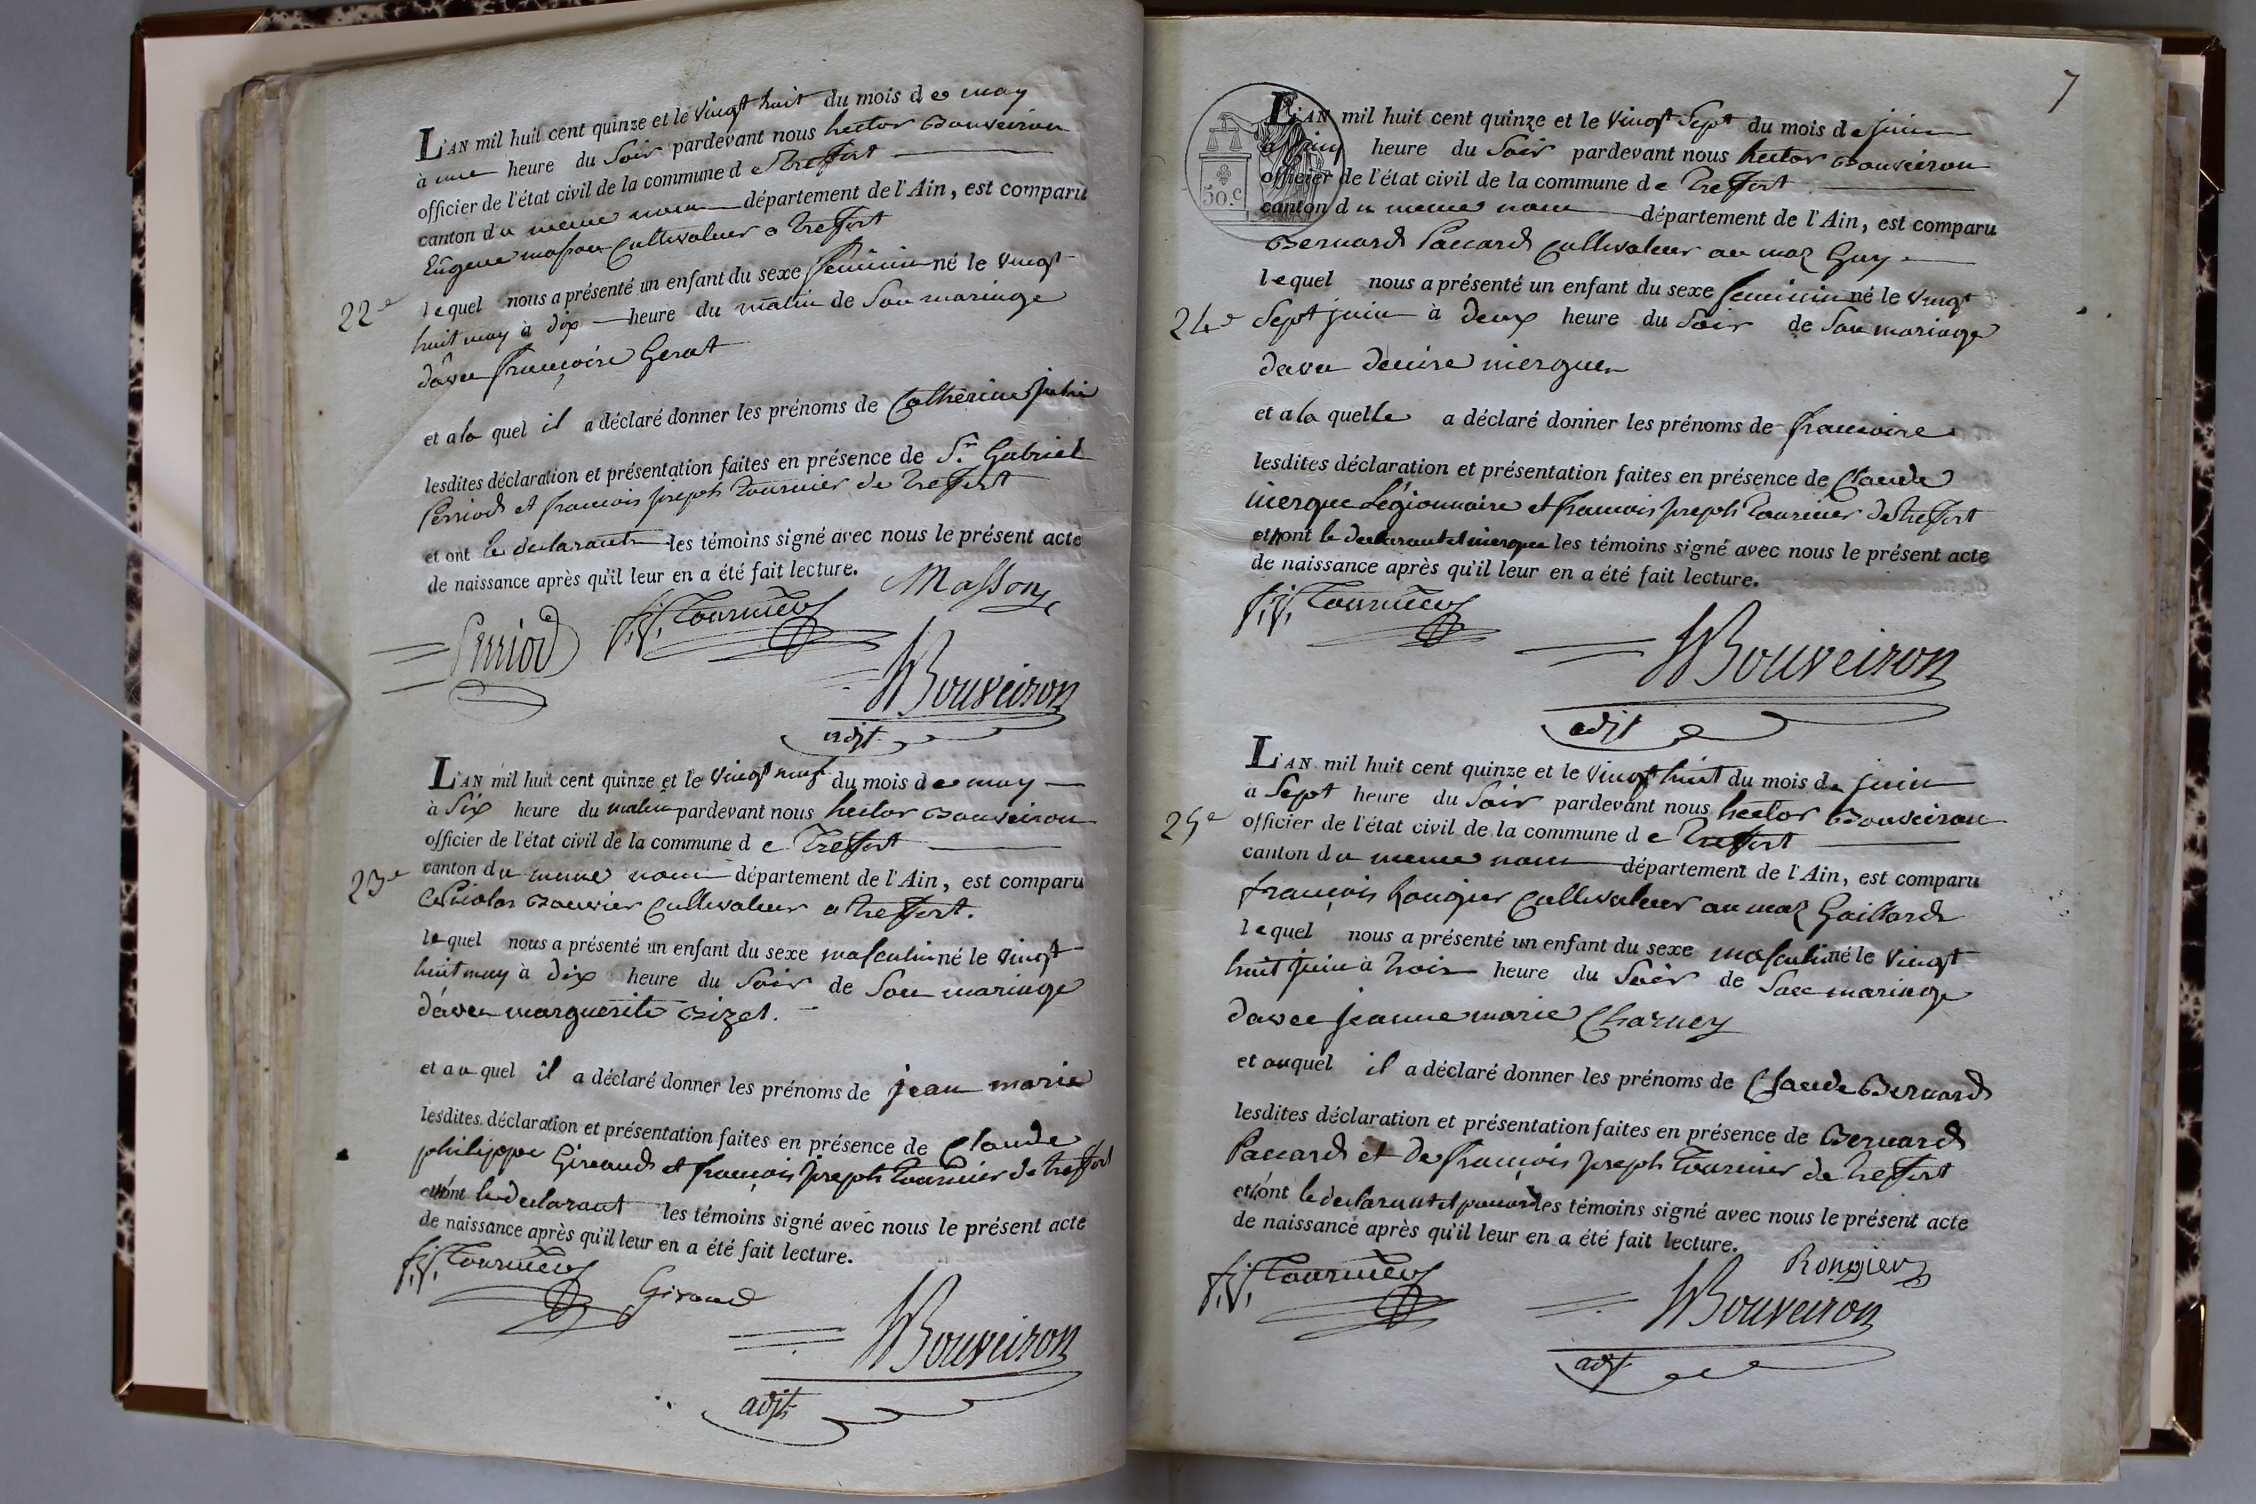 L'AN mil huit cent quinze et le vingt huit du mois de may
à une heure du Soir pardevant nous hector Bouveiron
officier de l'état civil de la commune de Treffort
canton du meme nom département de l'Ain, est comparu
Eugene masson Cultivateur a Treffort
22e
lequel nous a présenté un enfant du sexe feminin né le vingt
huit may à dix heure du matin de Son mariage
davec françoise Gerat
et a la quel il a déclaré donner les prénoms de Catherine julie
lesdites déclaration et présentation faites en présence de Sr. Gabriel
Perriod et françois joseph Tournier de Treffort
et ont le declarant les témoins signé avec nous le présent acte
de naissance après qu'il leur en a été fait lecture.
Masson
Perriod
f. j. Tournier
Bouveiron
adjt
L'AN mil huit cent quinze et le vingt neuf du mois de may
à Six heure du matin pardevant nous hector Bouveiron
officier de l'état civil de la commune de Treffort
23e
canton du meme nom département de l'Ain, est comparu
Nicolas Bouvier Cultivateur a Treffort.
lequel nous a présenté un enfant du sexe masculin né le vingt
huit may à dix heure du Soir de Son mariage
davec marguerite Bizet.
et au quel il a déclaré donner les prénoms de jean marie
lesdites déclaration et présentation faites en présence de Claude
philippe Giraud et françois joseph Tournier de Treffort
et n'ont le declarant les témoins signé avec nous le présent acte
de naissance après qu'il leur en a été fait lecture.
f. j. Tournier
Giraud
Bouveiron
adjt
7
50.c
L'AN mil huit cent quinze et le vingt Sept du mois de juin
a cinq heure du Soir pardevant nous hector Bouveiron
officier de l'état civil de la commune de Treffort
canton du meme nom département de l'Ain, est comparu
Bernard Paccard Cultivateur au maz Guy
lequel nous a présenté un enfant du sexe feminin né le vingt
24e
Sept juin à deux heure du Soir de Son mariage
davec denise niergue
et a la quelle a déclaré donner les prénoms de francoise
lesdites déclaration et présentation faites en présence de Claude
niergue Légionnaire et francois joseph Tournier de Treffort
et n'ont le declarant et niergue les témoins signé avec nous le présent acte
de naissance après qu'il leur en a été fait lecture.
f. j. Tournier
Bouveiron
adjt
L'AN mil huit cent quinze et le vingt huit du mois de juin
a Sept heure du Soir pardevant nous hector Bouveiron
25e
officier de l'état civil de la commune de Treffort
canton du meme nom département de l'Ain, est comparu
françois Rougier Cultivateur au maz Gaillard
lequel nous a présenté un enfant du sexe masculin né le vingt
huit juin à trois heure du Soir de Son mariage
davec jeanne marie Charney
et auquel il a déclaré donner les prénoms de Claude Bernard
lesdites déclaration et présentation faites en présence de Bernard
Paccard et de françois joseph Tournier de Treffort
et n'ont le declarant et paccard les témoins signé avec nous le présent acte
de naissance après qu'il leur en a été fait lecture.
Rougier
f. j. Tournier
Bouveiron
adjt